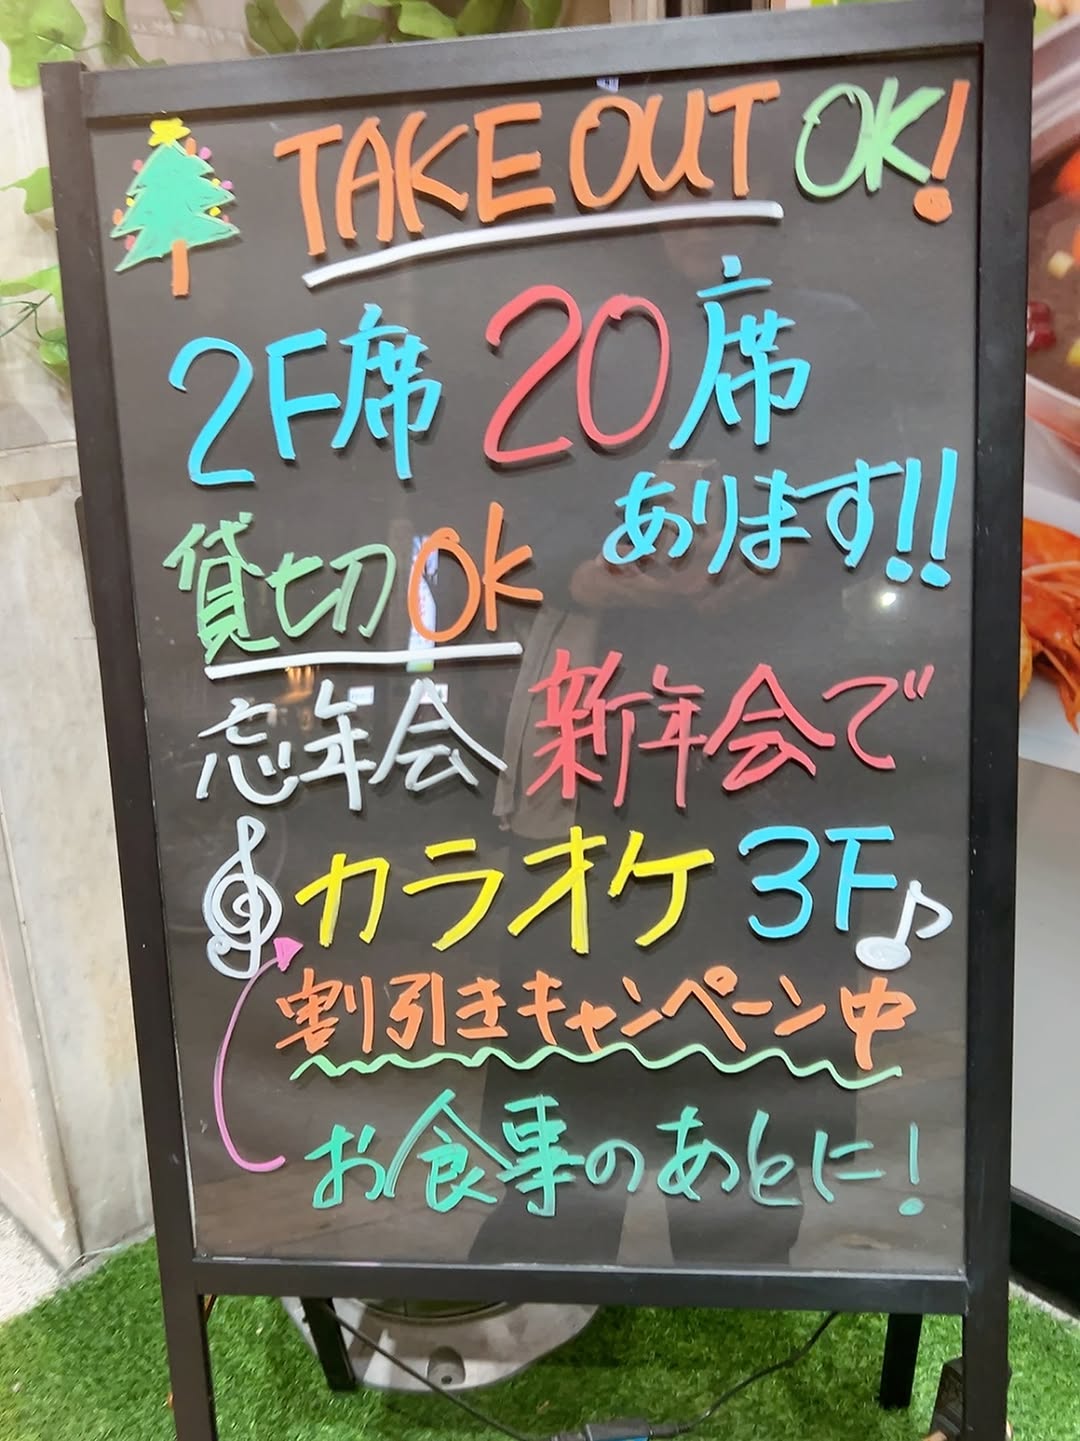 TAKE OUT OK!
2F席 20席
あります!!
貸切OK
忘年会 新年会で
カラオケ 3F
割引きキャンペーン中
お食事のあとに!